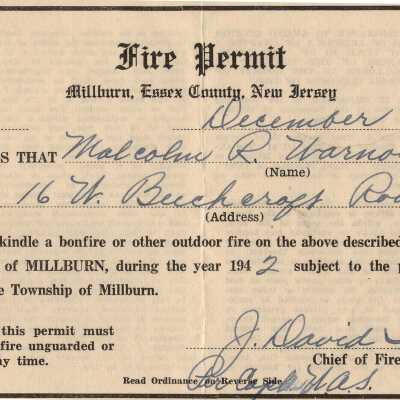 Fire Permit
Millburn, Essex County, New Jersey
December
S THAT Malcolm R. Warno
(Name)
16 W. Beechcroft Roa
(Address)
kindle a bonfire or other outdoor fire on the above described
of MILLBURN, during the year 1942 subject to the p
e Township of Millburn.
this permit must
fire unguarded or
ny time.
J. David
Chief of Fire
Read Ordinance on Reverse Side